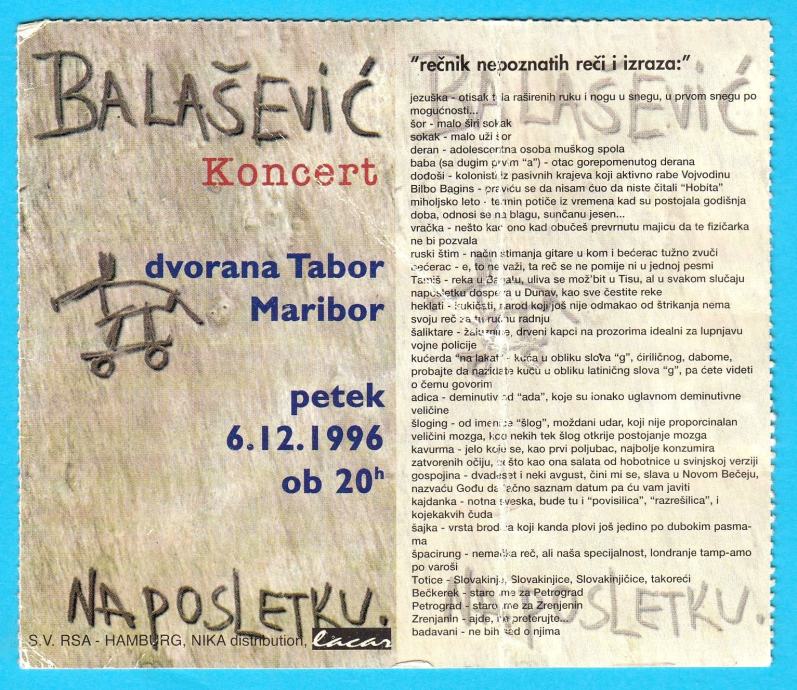 BALAŠEVIĆ
Koncert
dvorana Tabor
Maribor
petek
6.12.1996
ob 20h
NAPOSLETKU.
S.V. RSA - HAMBURG, NIKA distribution, lacar
"rečnik nepoznatih reči i izraza:"
jezuška - otisak tela raširenih ruku i nogu u snegu, u prvom snegu po
mogućnosti...
šor - malo širi sokak
sokak - malo uži šor
deran - adolescentna osoba muškog spola
baba (sa dugim prvim "a") - otac gorepomenutog derana
dođoši - kolonisti iz pasivnih krajeva koji aktivno rabe Vojvodinu
Bilbo Bagins - praviću se da nisam čuo da niste čitali "Hobita"
miholjsko leto - termin potiče iz vremena kad su postojala godišnja
doba, odnosi se na blagu, sunčanu jesen...
vračka - nešto kao ono kad obučeš prevrnutu majicu da te fizičarka
ne bi pozvala
ruski štim - način štimanja gitare u kom i bećerac tužno zvuči
bećerac - e, to ne važi, ta reč se ne pomije ni u jednoj pesmi
Tamiš - reka u Banatu, uliva se mož'bit u Tisu, al u svakom slučaju
naposletku dospeva u Dunav, kao sve čestite reke
heklati - kukičati, narod koji još nije odmakao od štrikanja nema
svoju reč za tu ručnu radnju
šaliktare - žaluzine, drveni kapci na prozorima idealni za lupnjavu
vojne policije
kućerda "na lakat" - kuća u obliku slova "g", ćiriličnog, dabome,
probajte da nazidate kuću u obliku latiničng slova "g", pa ćete videti
o čemu govorim
adica - deminutiv od "ada", koje su ionako uglavnom deminutivne
veličine
šloging - od imenice "šlog", moždani udar, koji nije proporcinalan
veličini mozga, kod nekih tek šlog otkrije postojanje mozga
kavurma - jelo koje se, kao prvi poljubac, najbolje konzumira
zatvorenih očiju, nešto kao ona salata od hobotnice u svinjskoj verziji
gospojina - dvadeset i neki avgust, čini mi se, slava u Novom Bečeju,
nazvaću Gođu da tačno saznam datum pa ću vam javiti
kajdanka - notna sveska, bude tu i "povisilica", "razrešilica", i
kojekakvih čuda
šajka - vrsta broda koji kanda plovi još jedino po dubokim pasma-
ma
špacirung - nemačka reč, ali naša specijalnost, londranje tamp-amo
po varoši
Totice - Slovakinje, Slovakinjice, Slovakinjičice, takoreći
Bečkerek - staro ime za Petrograd
Petrograd - staro ime za Zrenjenin
Zrenjenin - ajde, ne preterujte...
badavani - ne bih sad o njima